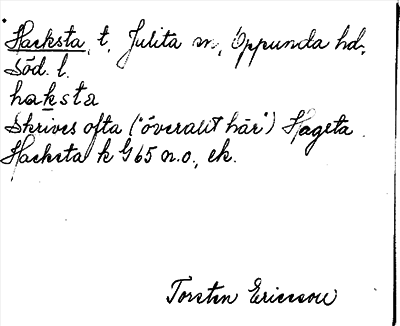 Hacksta, t. Julita sn, Oppunda hd,
Söd. l.
haksta
Skrives ofta ("överallt här") Hagsta.
Hacksta k G 65 n.o., ek.
Torsten Ericsson